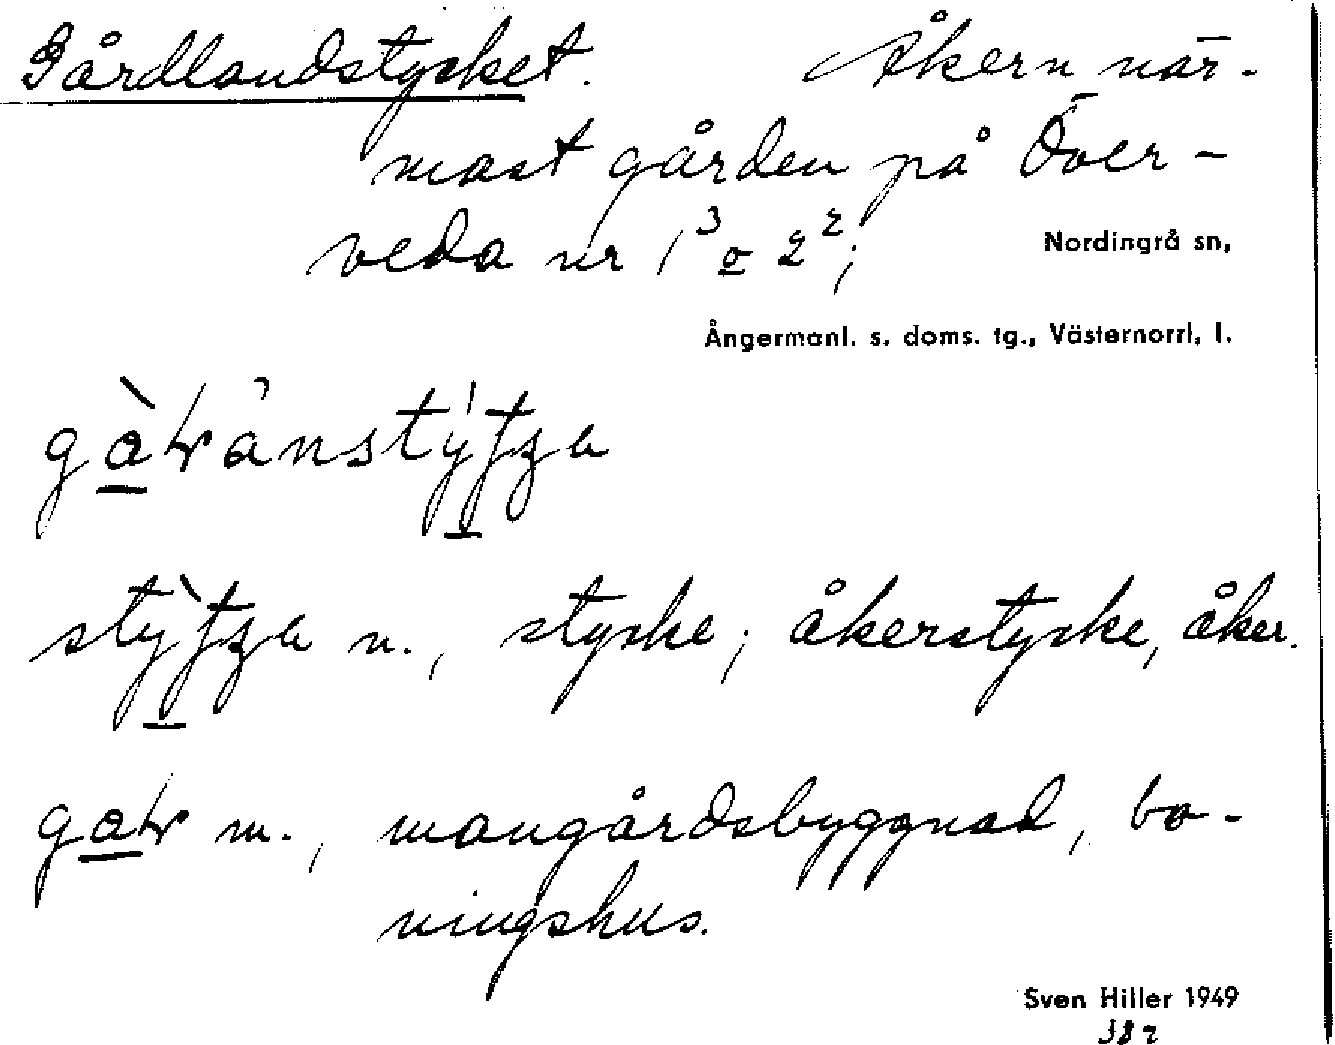 Gårdlandstycket. Åkern när-
mast gården på Över-
veda nr 1³ o 2²;
Nordingrå sn,
Ångermanl. s. doms. tg., Västernorrl. l.
stycke; åkerstycke, åker.
m., mangårdsbyggnad, bo-
ningshus.
Sven Hiller 1949
382